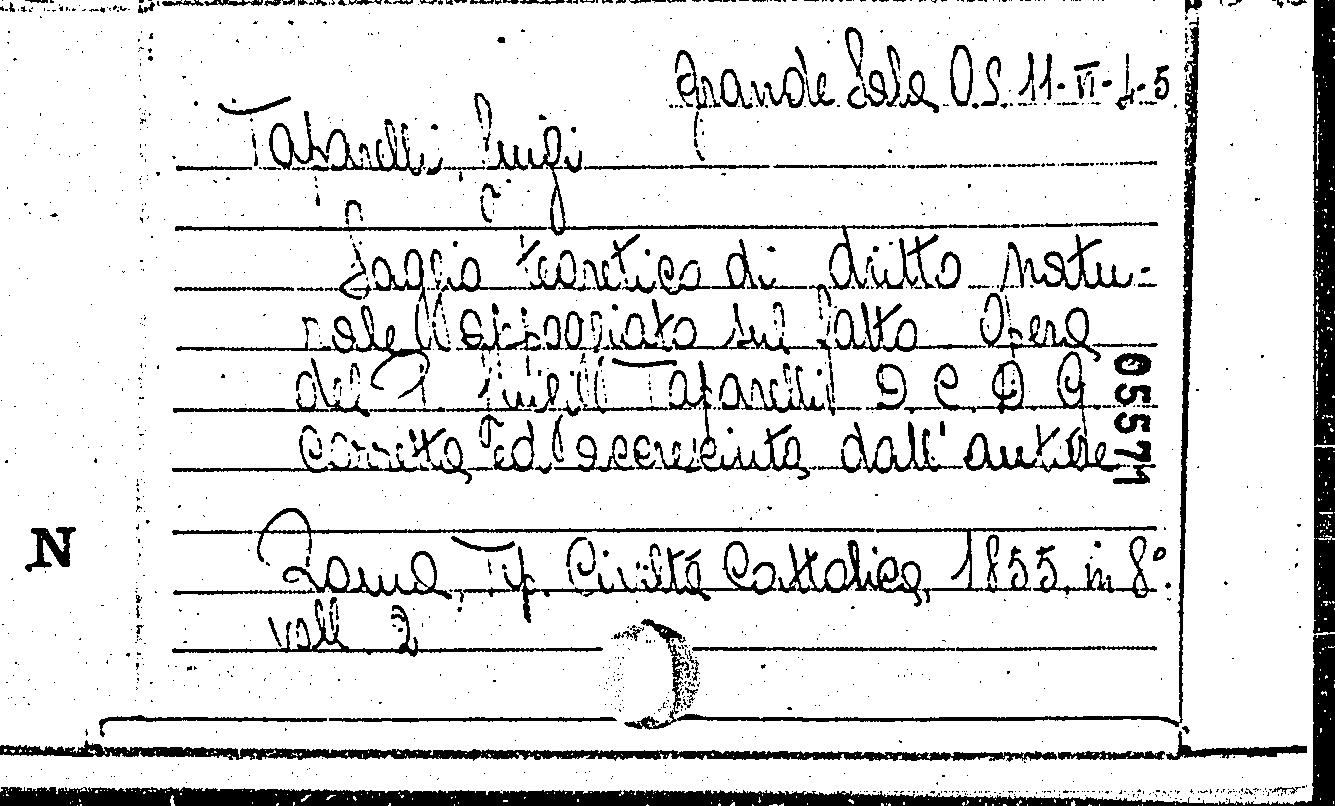 Grande Sala O.S. 11-VI-4-5
Taparelli, Luigi
Saggio teoretico di dritto natu-
rale appoggiato sul fatto Opera
del P. Luigi Taparelli D. C. D. G.
Corretta, ed accresciuta dall'autore
05571
N
Roma, Tip. Civiltà Cattolica, 1855, in 8°.
voll. 2